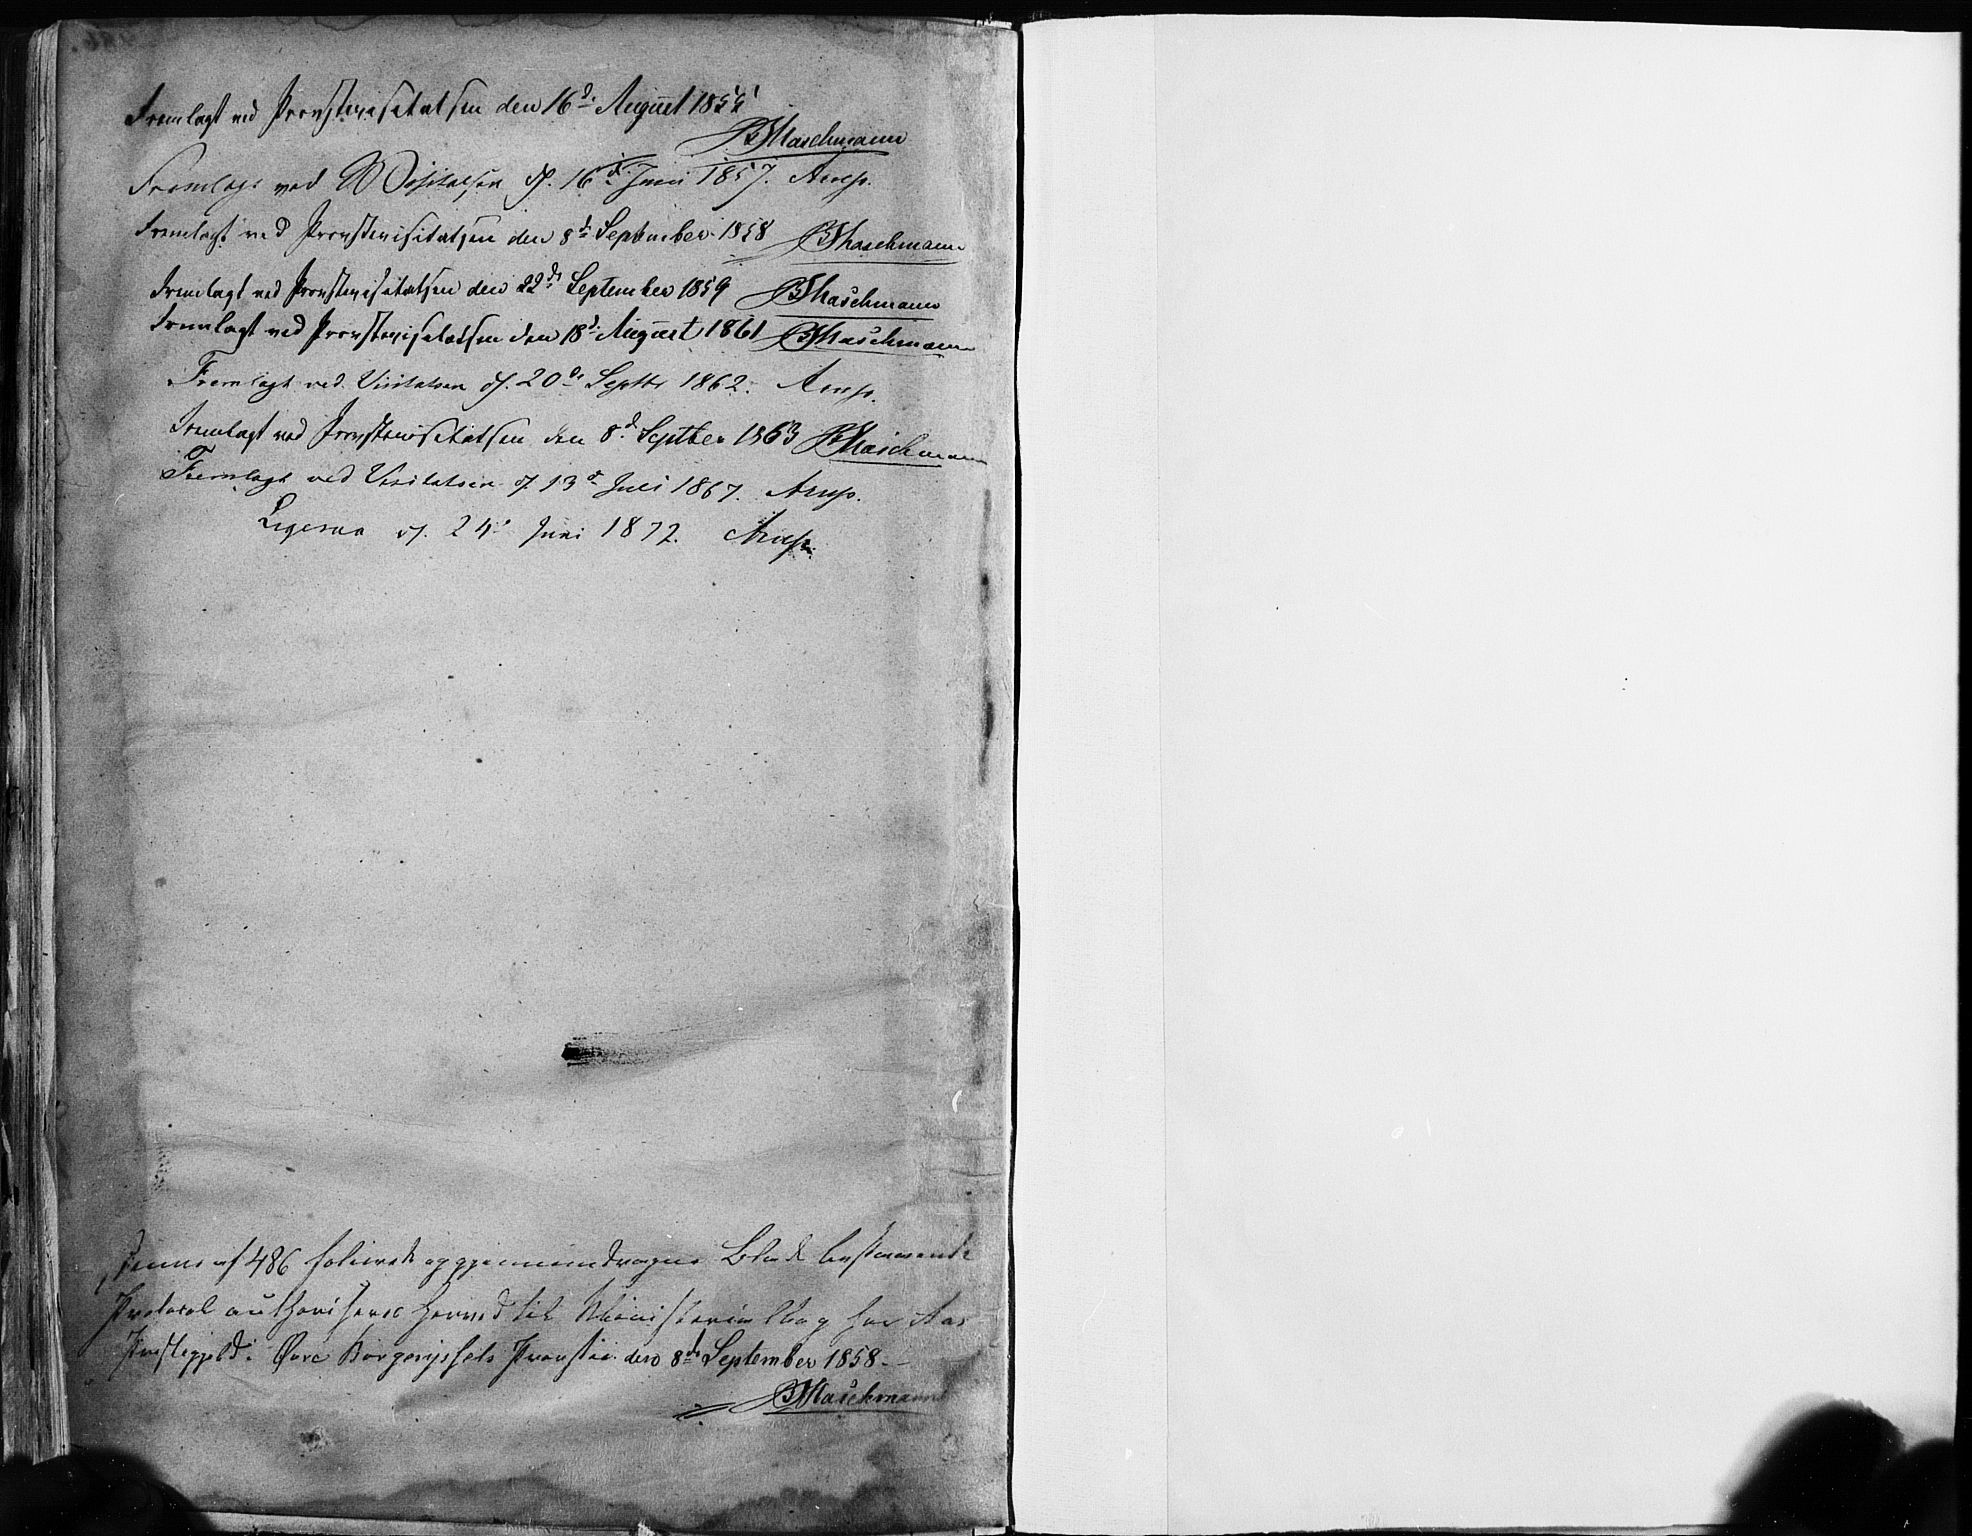 Fremlagt ved Provstevisitatsen den 16d August 1855
BMaschmann
Fremlagt ved Visitatsen d. 16d Juni 1857. Arup.
Fremlagt ved Provstevisitatsen den 8d September 1858 BMaschmann
Fremlagt ved Provstevisitatsen den 22d September 1859 BMaschmann
Fremlagt ved Provstevisitatsen den 18d August 1861 BMaschmann
Fremlagt ved Visitatsen d. 20d Septbr 1862. Arup.
Fremlagt ved Provstevisitatsen den 8d Septber 1863 BMaschmann
Fremlagt ved Visitatsen d. 13d Juli 1867. Arup.
Ligesaa d. 24d Juni 1872. Arup.
Denne af 486 folierede og gjennemdragne Blade bestaaende
Protocol authoriseres herved til Ministerialbog for Aas
Præstegjeld i Øvre Borgesyssels Provstie den 8d September 1858.
BMaschmann